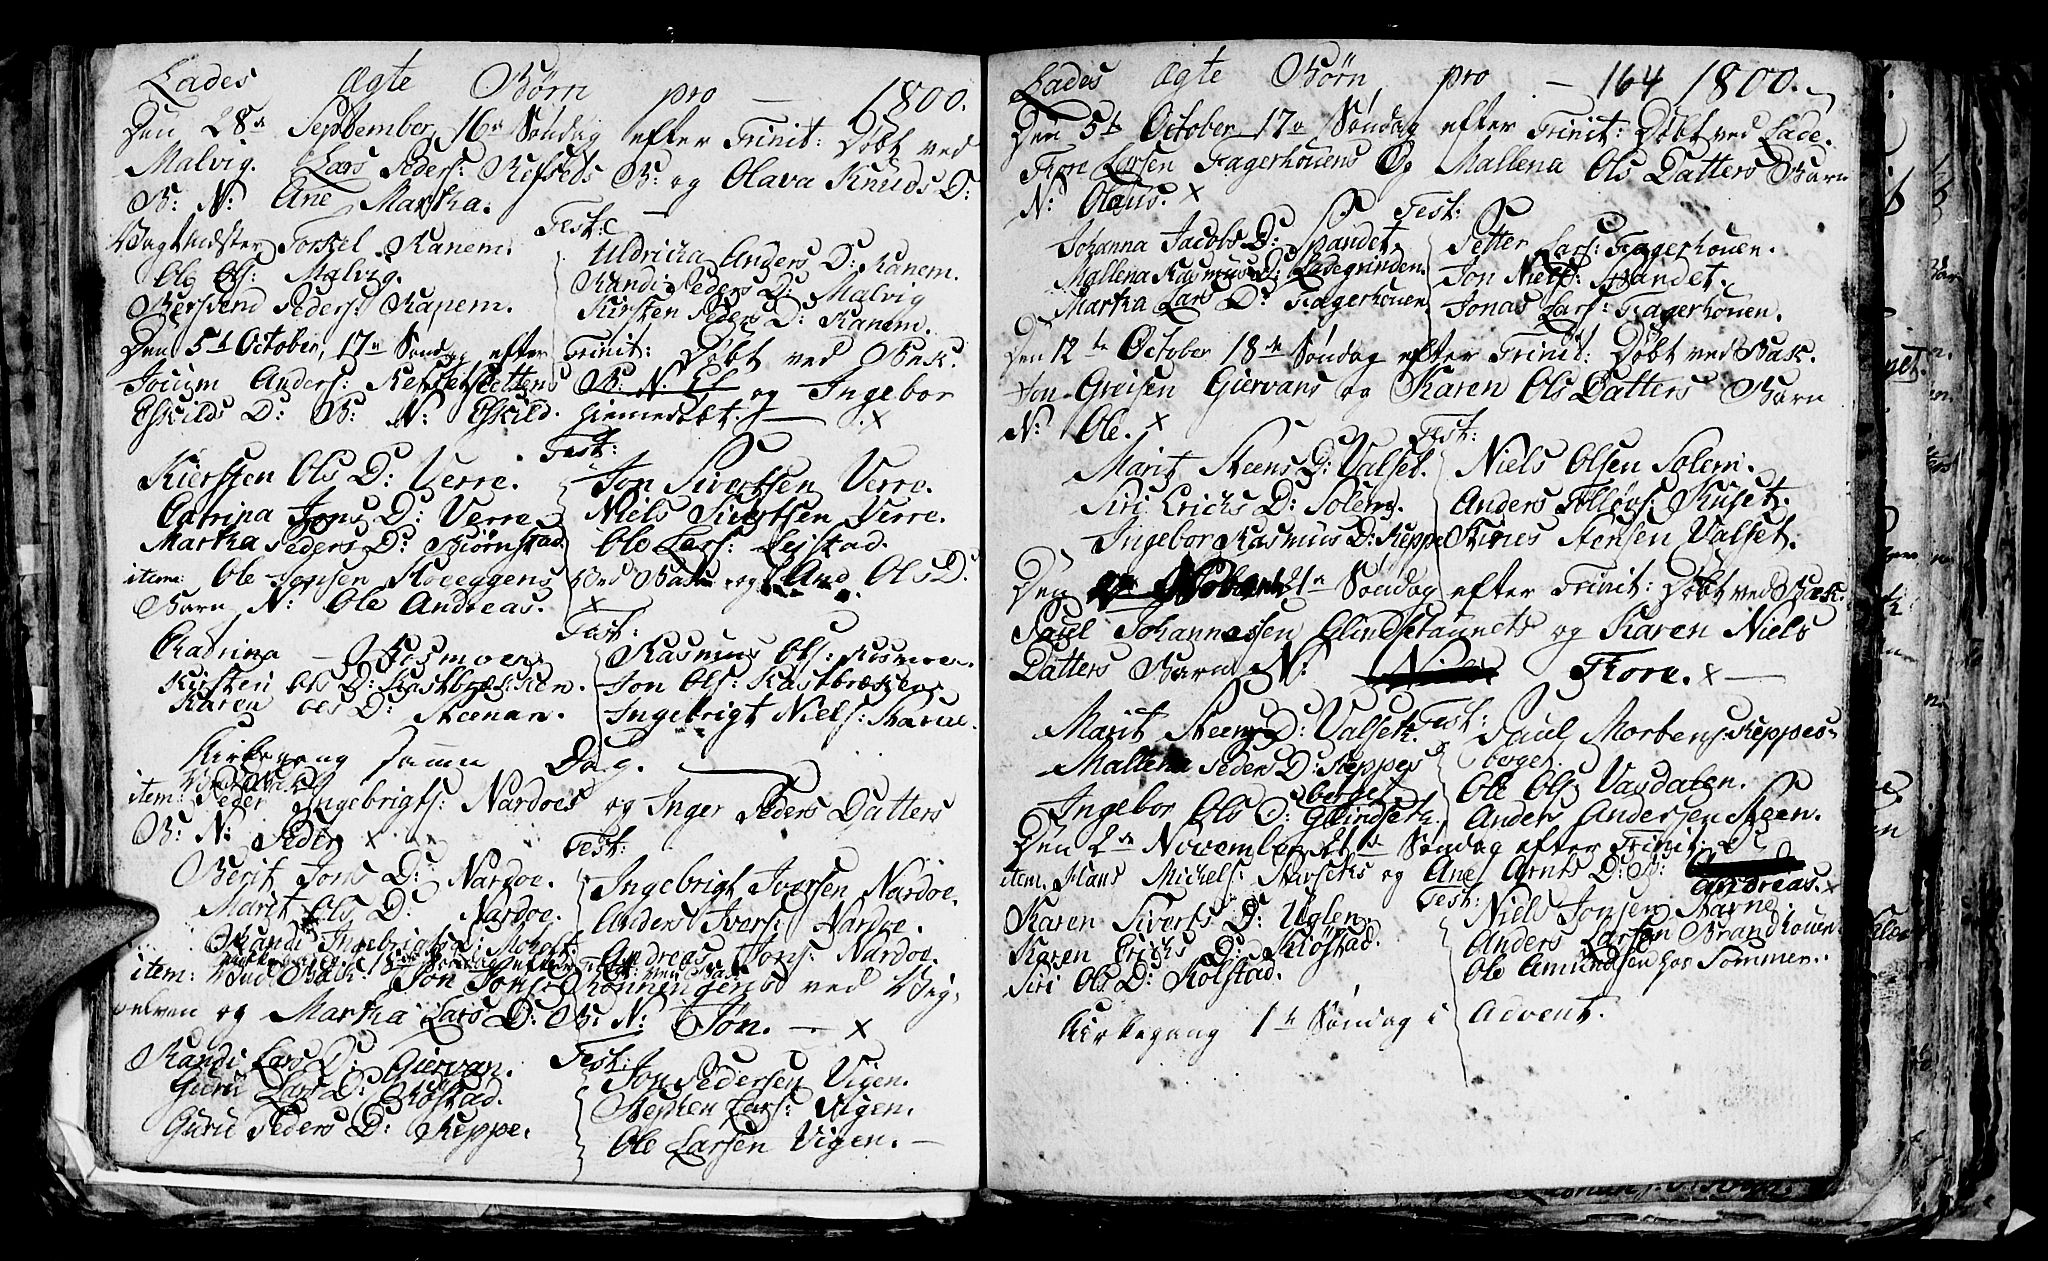 Lades Ægte Børn pro — 1800.
Den 28de September, 16de Søndag efter Trinit: Døbt ved
Malvig. Lars Peders: Refseds B: og Olava Knuds D:
B: N: Ane Martha.
Test:
Vagtmester Torkel Ranem. Uldricka Anders D: Ranem.
Ole Ols: Malvig. Randi Peders D: Malvig
Bersvend Peders: Ranem. Kirsten Peders D: Ranem.
Den 5te October, 17de Søndag efter Trinit: Døbt ved Bak.
Jocum Anders: og Ingebor
Eskilds D: B: N: Eskild. hiemedøbt. x
Test:
Kiersten Ols D: Verre. Jon Sivertsen Verre.
Catrina Jons D: Verre. Niels Sivertsen Verre.
Martha Peders D: Biørnstad. Ole Lars: Leistad.
item: Ole Jonsen Ved Bake og Ane Ols D:
Barn N: Ole Andreas. x
Test:
Cathrina — Rismoen. Rasmus Ols: Rismoen.
Kirsten Ols D: Kastbrækken. Jon Ols: Kastbrækken.
Karen Ols D: Steenan. Ingebrigt Niels:
Kirkegang samme Dag.
item: Peder Ingebrigts: Nardoes og Inger Peders Datters
B: N: Peder x
Test:
Berit Jons D: Nardoe. Ingebrigt Iversen Nardoe.
Marit Ols D: Nardoe. Anders Ivers: Nardoe.
Randi Ingebrigts D: Moholt. Andreas Jons: Nardoe.
item: Ved Bak. Jon Jons: Rønningens ved
og Martha Lars D: B: N: Jon. — x
Test:
Randi Lars D: Giervan. Jon Pedersen Vigen.
Guru Lars D: Stephen Lars: Vigen.
Guru Peders D: Reppe. Ole Larsen Vigen. —
Lades Ægte Børn pro — 164 1800.
Den 5te October 17de Søndag efter Trinit: Døbt ved Lade.
Jon Larsen Fagerhouens Og Mallena Ols Datters Barn
N: Olaus. x
Test:
Johanna Jacobs D: Spandet. Petter Lars: Fagerhouen.
Mallena Rasmus D: Ladegrinden. Jon Niels: Spandet.
Martha Lars D: Fagerhouen. Jonas Lars: Fagerhouen.
Den 12te October 18de Søndag efter Trinit: Døbt ved Bak.
Jon Greisen Giervans og Karen Ols Datters Barn
N: Ole. x
Test:
Marit Steens D: Valset. Niels Olsen Solem.
Siri Erichs D: Solem. Anders Kuset.
Ingebor Rasmus D: Reppe Stensen Valset.
Den 21de Søndag efter Trinit: Døbt ved Bak.
Paul Johannesen og Karen Niels
Datters Barn N: Tore. x —
Test:
Marit Steens D: Valset. Paul Mortens: Reppes-
berget.
Mallena Peders D: Reppes
berget. Ole Ols: Vasdalen.
Ingebor Ols D: Anders Andersen Steen.
Den 2de November, 21de Søndag efter Trinit:
item. Hans Michels: og Ane Arnts D: B: Andreas. x
Test:
Karen Siverts D: Uglen. Niels Jonsen
Karen Erichs D: Anders Larsen Brandhouen.
Siri Ols D: Kolstad. Ole Amundsen hos Sommer.
Kirkegang 1te Søndag i Advent.